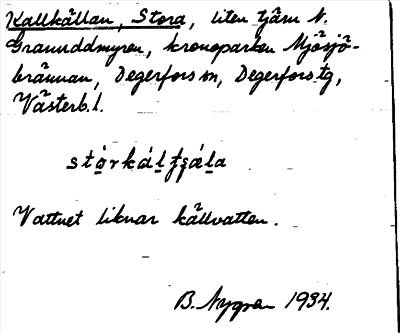 Kallkällan, Stora, liten tjärn N.
Granuddmyren, kronoparken Mjösjö-
brännan, Degerfors sn, Degerfors tg,
Västerb. l.
stórkálţşǽla
Vattnet liknar källvatten.
B. Nygren 1934.